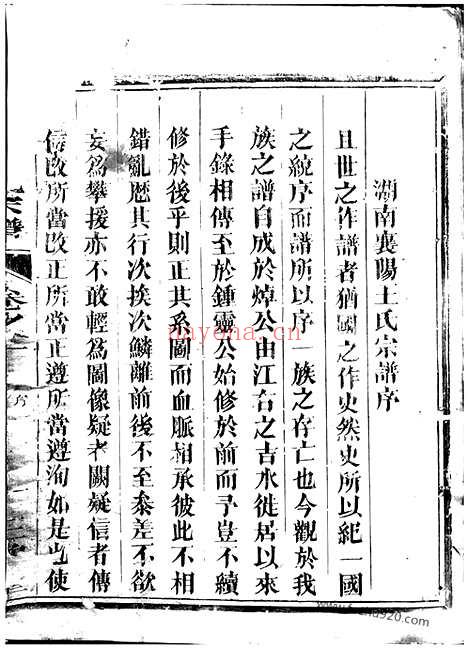 湖南襄陽王氏宗譜序
且世之作譜者猶國之作史然史所以紀一國
之統序而譜所以序一族之存亡也今觀於我
族之譜自成於焯公由江右之吉水徙居以來
手錄相傳至於鍾靈公始修於前而予豈不續
修於後乎則正其系圖而血脈相承彼此不相
錯亂歷其行次挨次鱗離前後不至泰差不欲
妄為攀援亦不敢輕為圖像疑者闕疑信者傳
信改所當改正所當正遵所當遵洵如是也使
宗譜
nayona.cn